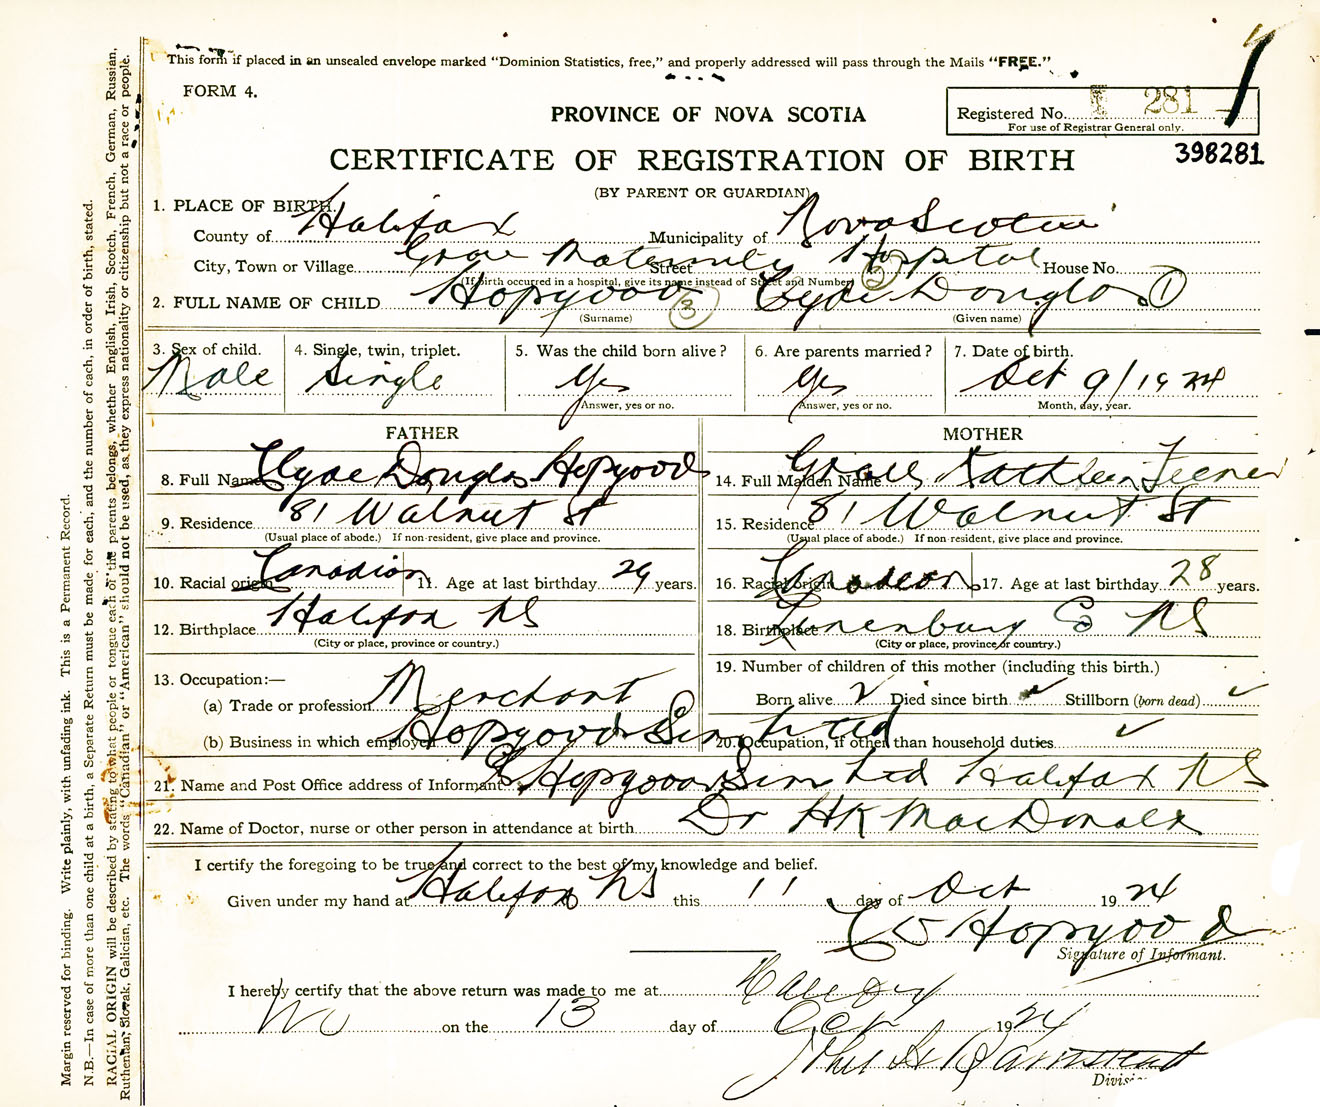 This form if placed in an unsealed envelope marked "Dominion Statistics, free," and properly addressed will pass through the Mails "FREE."
FORM 4.
PROVINCE OF NOVA SCOTIA
Registered No. 281
For use of Registrar General only.
398281
CERTIFICATE OF REGISTRATION OF BIRTH
(BY PARENT OR GUARDIAN)
1. PLACE OF BIRTH.
County of Halifax Municipality of Nova Scotia
City, Town or Village Grace Maternity Hospital Street House No.
(If birth occurred in a hospital, give its name instead of Street and Number) 2
2. FULL NAME OF CHILD Hopgood 3 Clyde Douglas 1
(Surname) (Given name)
3. Sex of child. 4. Single, twin, triplet. 5. Was the child born alive? 6. Are parents married? 7. Date of birth.
Male Single Yes Yes Oct 9/1924
Answer, yes or no. Answer, yes or no. Month, day, year.
FATHER MOTHER
8. Full Name Clyde Douglas Hopgood 14. Full Maiden Name Grace Kathleen Feener
9. Residence 81 Walnut St 15. Residence 81 Walnut St
(Usual place of abode.) If non-resident, give place and province. (Usual place of abode.) If non-resident, give place and province.
10. Racial origin Canadian 11. Age at last birthday 29 years. 16. Racial origin Canadian 17. Age at last birthday 28 years.
12. Birthplace Halifax NS 18. Birthplace Lunenburg Co NS
(City or place, province or country.) (City or place, province or country.)
13. Occupation:— 19. Number of children of this mother (including this birth.)
(a) Trade or profession Merchant Born alive ✓ Died since birth ✓ Stillborn (born dead) ✓
(b) Business in which employed Hopgood Limited 20. Occupation, if other than household duties ✓
21. Name and Post Office address of Informant Hopgood Ltd Halifax NS
22. Name of Doctor, nurse or other person in attendance at birth Dr HK MacDonald
I certify the foregoing to be true and correct to the best of my knowledge and belief.
Given under my hand at Halifax NS this 11 day of Oct 1924
C D Hopgood
Signature of Informant.
I hereby certify that the above return was made to me at Halifax
NS on the 13 day of Oct 1924
Margin reserved for binding. Write plainly, with unfading ink. This is a Permanent Record.
N.B.—In case of more than one child at a birth, a Separate Return must be made for each, and the number of each, in order of birth, stated.
RACIAL ORIGIN will be described by stating to what people or tongue each of the parents belongs, whether English, Irish, Scotch, French, German, Russian,
Ruthenian, Slovak, Galician, etc. The words "Canadian" or "American" should not be used, as they express nationality or citizenship but not a race or people.